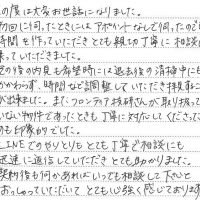 の度は大変お世話になりました。
初回に伺ったときにはアポイントなしで伺ったので
時間を作っていただきとても親切丁寧に相談に
乗っていただきました。
その後の内見も希望時には退去後の清掃中にも
かかわらず、時間など調整していただき検討すること
が出来ました。またフロンティア技研さんが取り扱って
いない物件であったときも丁寧に対応してくださっての
も印象的でした。
LINEでのやりとりもとても丁寧ご相談にも
迅速に返信していただきとても助かりました。
契約後も何かあればいつでも相談して下さいと
おっしゃっていただいてとても心強く感じております